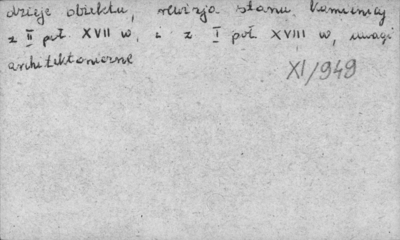 dzieje obiektu, rewizja stanu kamienicy
z II poł. XVII w, i z I poł XVIII w, uwagi
architektoniczne
XI/949